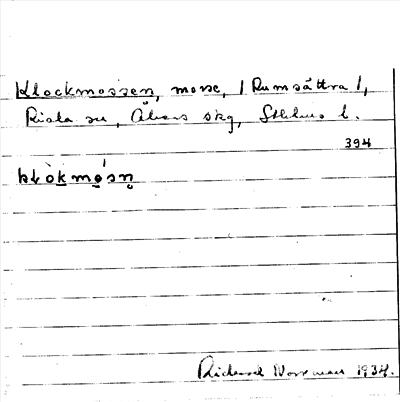 Klockmossen, mosse, /Rumsättra/,
Riala sn, Åkers skg, Sthlms l.
394
kłòkmósn̥
Rickard Norrman 1934.